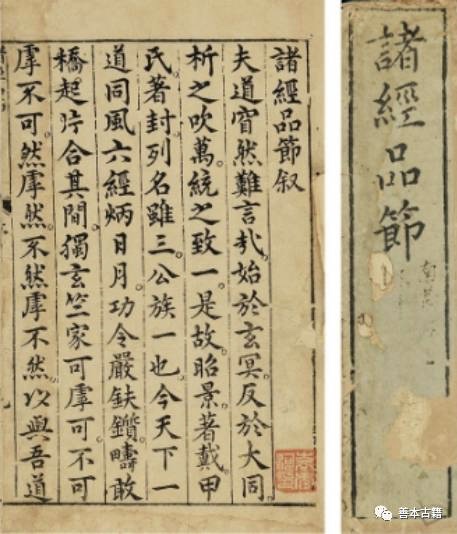 諸經品節叙
夫道窅然難言哉。始於玄冥。反於大同。
析之吹萬。統之致一。是故昭景著戴。甲
氏著封。列名雖三。公族一也。今天下一
道同風。六經炳日月。功令嚴鈇鑕。疇敢
橋起片合其間。獨玄竺家可虖可。不可
虖不可。然虖然。不然虖不然。以與吾道
諸經品節
善本古籍